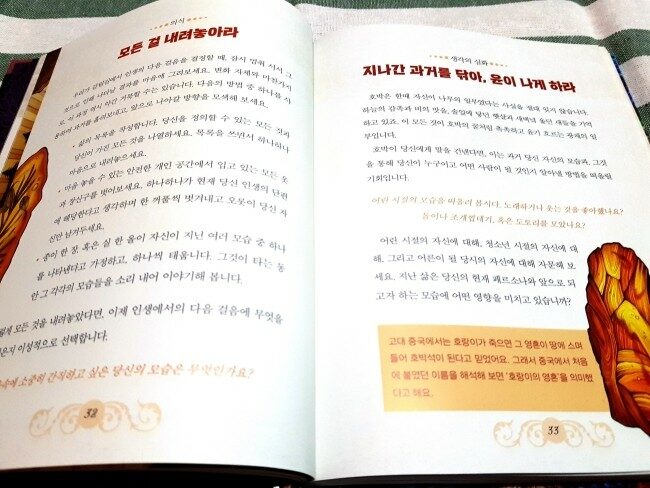 의식
모든 걸 내려놓아라
우리가 갈림길에서 인생의 다음 걸음을 결정할 때, 잠시 멈춰 서서 그
것으로 인해 나타날 결과를 마음에 그려보세요. 변화 자체와 마찬가지
로, 이 과정 역시 아주 거북할 수는 있습니다. 다음의 방법 중 하나를 사
용하여 과거를 흘려보내고, 앞으로 나아갈 방향을 모색해 보세요.
• 삶의 목록을 작성합니다. 당신을 정의할 수 있는 모든 것과
당신이 가진 모든 것을 나열하세요. 목록을 쓰면서 하나하나
마음으로 내려놓으세요.
• 마음 놓을 수 있는 안전한 개인 공간에서 입고 있는 모든 옷
과 장신구를 벗어보세요. 하나하나가 현재 당신 인생의 단편
에 해당한다고 생각하며 한 꺼풀씩 벗겨내고 오롯이 당신 자
신만 남겨두세요.
• 종이 한 장, 혹은 실 한 올이 자신이 지닌 여러 모습 중 하나
를 나타낸다고 가정하고, 하나씩 태웁니다. 그것이 타는 동
안 그 각각의 모습들을 소리 내어 이야기해 봅니다.
렇게 모든 것을 내려놓았다면, 이제 인생에서의 다음 걸음에 무엇을
은지 이성적으로 선택합니다.
소중히 간직하고 싶은 당신의 모습은 무엇인가요?
32
생각의 심화
지나간 과거를 닦아, 윤이 나게 하라
호박은 한때 자신이 나무의 일부였다는 사실을 절대 잊지 않습니다.
하늘의 감촉과 비의 맛을, 솔잎에 닿던 햇살과 새벽녘 울던 새들을 기억
하고 있죠. 이 모든 것이 호박의 꿈처럼 촉촉하고 윤기 흐르는 광채의 일
부입니다.
호박이 당신에게 말을 건넨다면, 이는 과거 당신 자신의 모습과, 그것
을 통해 당신이 누구이고 어떤 사람이 될 것인지 알아낼 방법을 떠올릴
기회입니다.
어린 시절의 모습을 떠올려 봅시다. 노래하거나 웃는 것을 좋아했나요?
돌이나 조개껍데기, 혹은 도토리를 모았나요?
어린 시절의 자신에 대해, 청소년 시절의 자신에 대
해, 그리고 어른이 될 당시의 자신에 대해 자문해 보
세요. 지난 삶은 당신의 현재 페르소나와 앞으로 되
고자 하는 모습에 어떤 영향을 미치고 있습니까?
고대 중국에서는 호랑이가 죽으면 그 영혼이 땅에 스며
들어 호박석이 된다고 믿었어요. 그래서 중국에서 처음
에 붙였던 이름을 해석해 보면 '호랑이의 영혼'을 의미했
다고 해요.
33